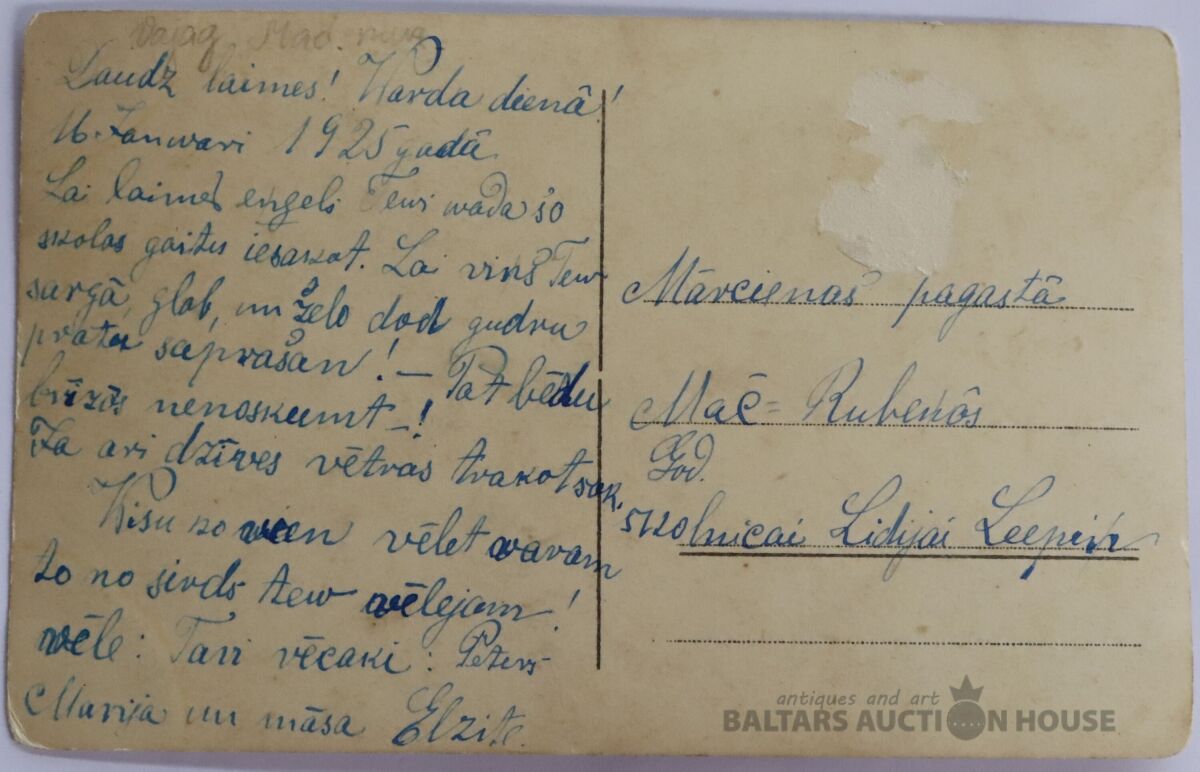 Vajag Mad.
Daudz laimes! Warda dienā!
16. Janwari 1925 gadā
Lai laimes engels Tewi wada šo
skolas gaitu iesakot. Lai vinš Tew
sargā, glob, un želo dod gudru
prātu saprašan! — Pat bēdu
brīzōs nenoskumt—!
Ja ari dzīwes vētras trakot sak.
Wisu ko wien vēlet waram
to no sirds tew wēlejam!
wēle: Tavi vēcaki: Peters
Marija un māsa Elzite.
Mārcienas pagastā
Māč= Rubenōs
God.
skolnicai Lidijai Leepiņ
antiques and art
BALTARS AUCTION HOUSE